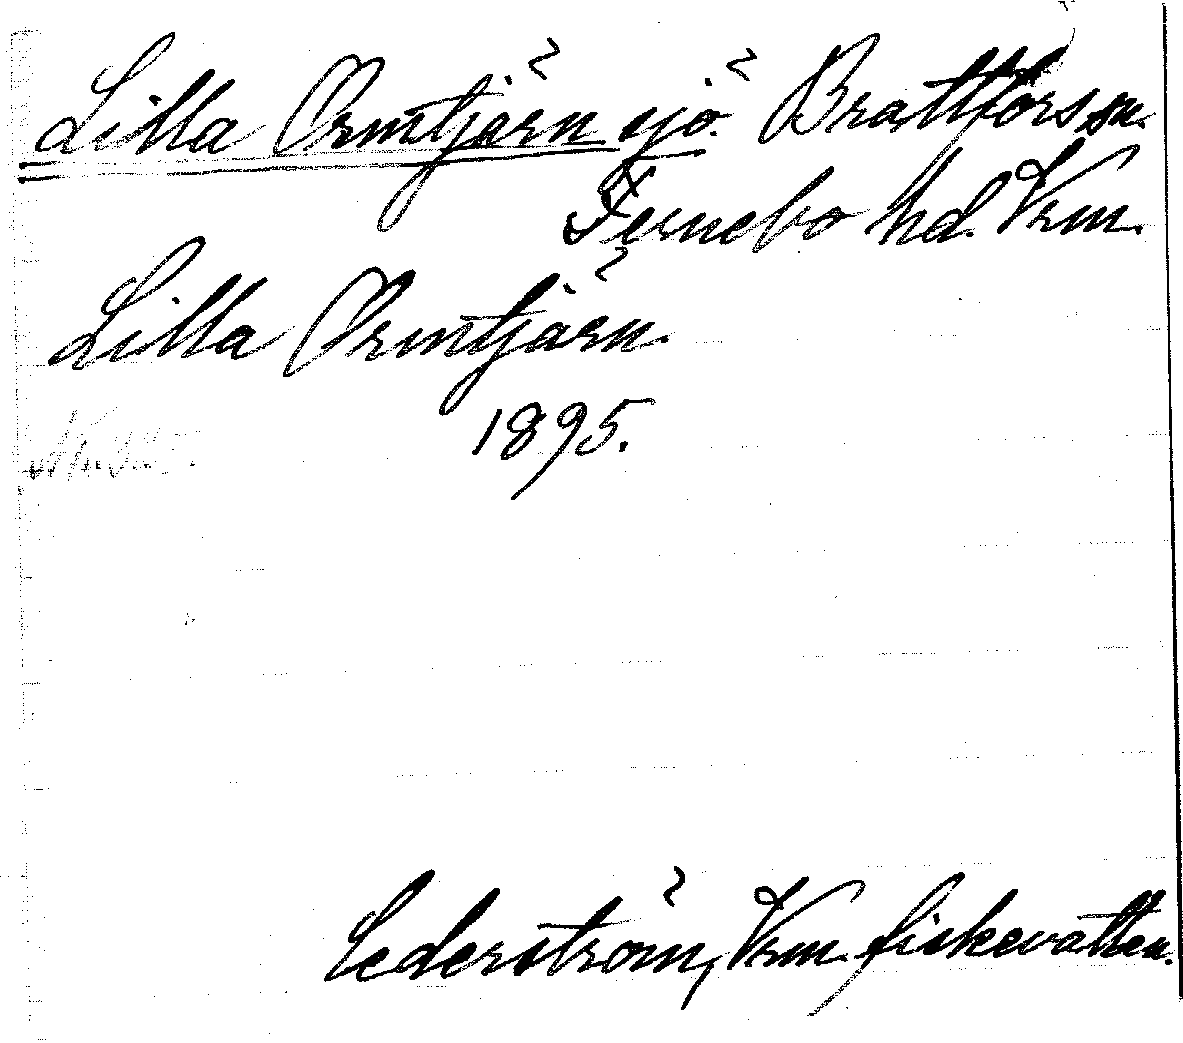 Lilla Ormtjärn sjö. Brattfors sn.
Fernebo hd. Vrm.
Lilla Ormtjärn.
1895.
Cederström, Vrm. fiskevatten.